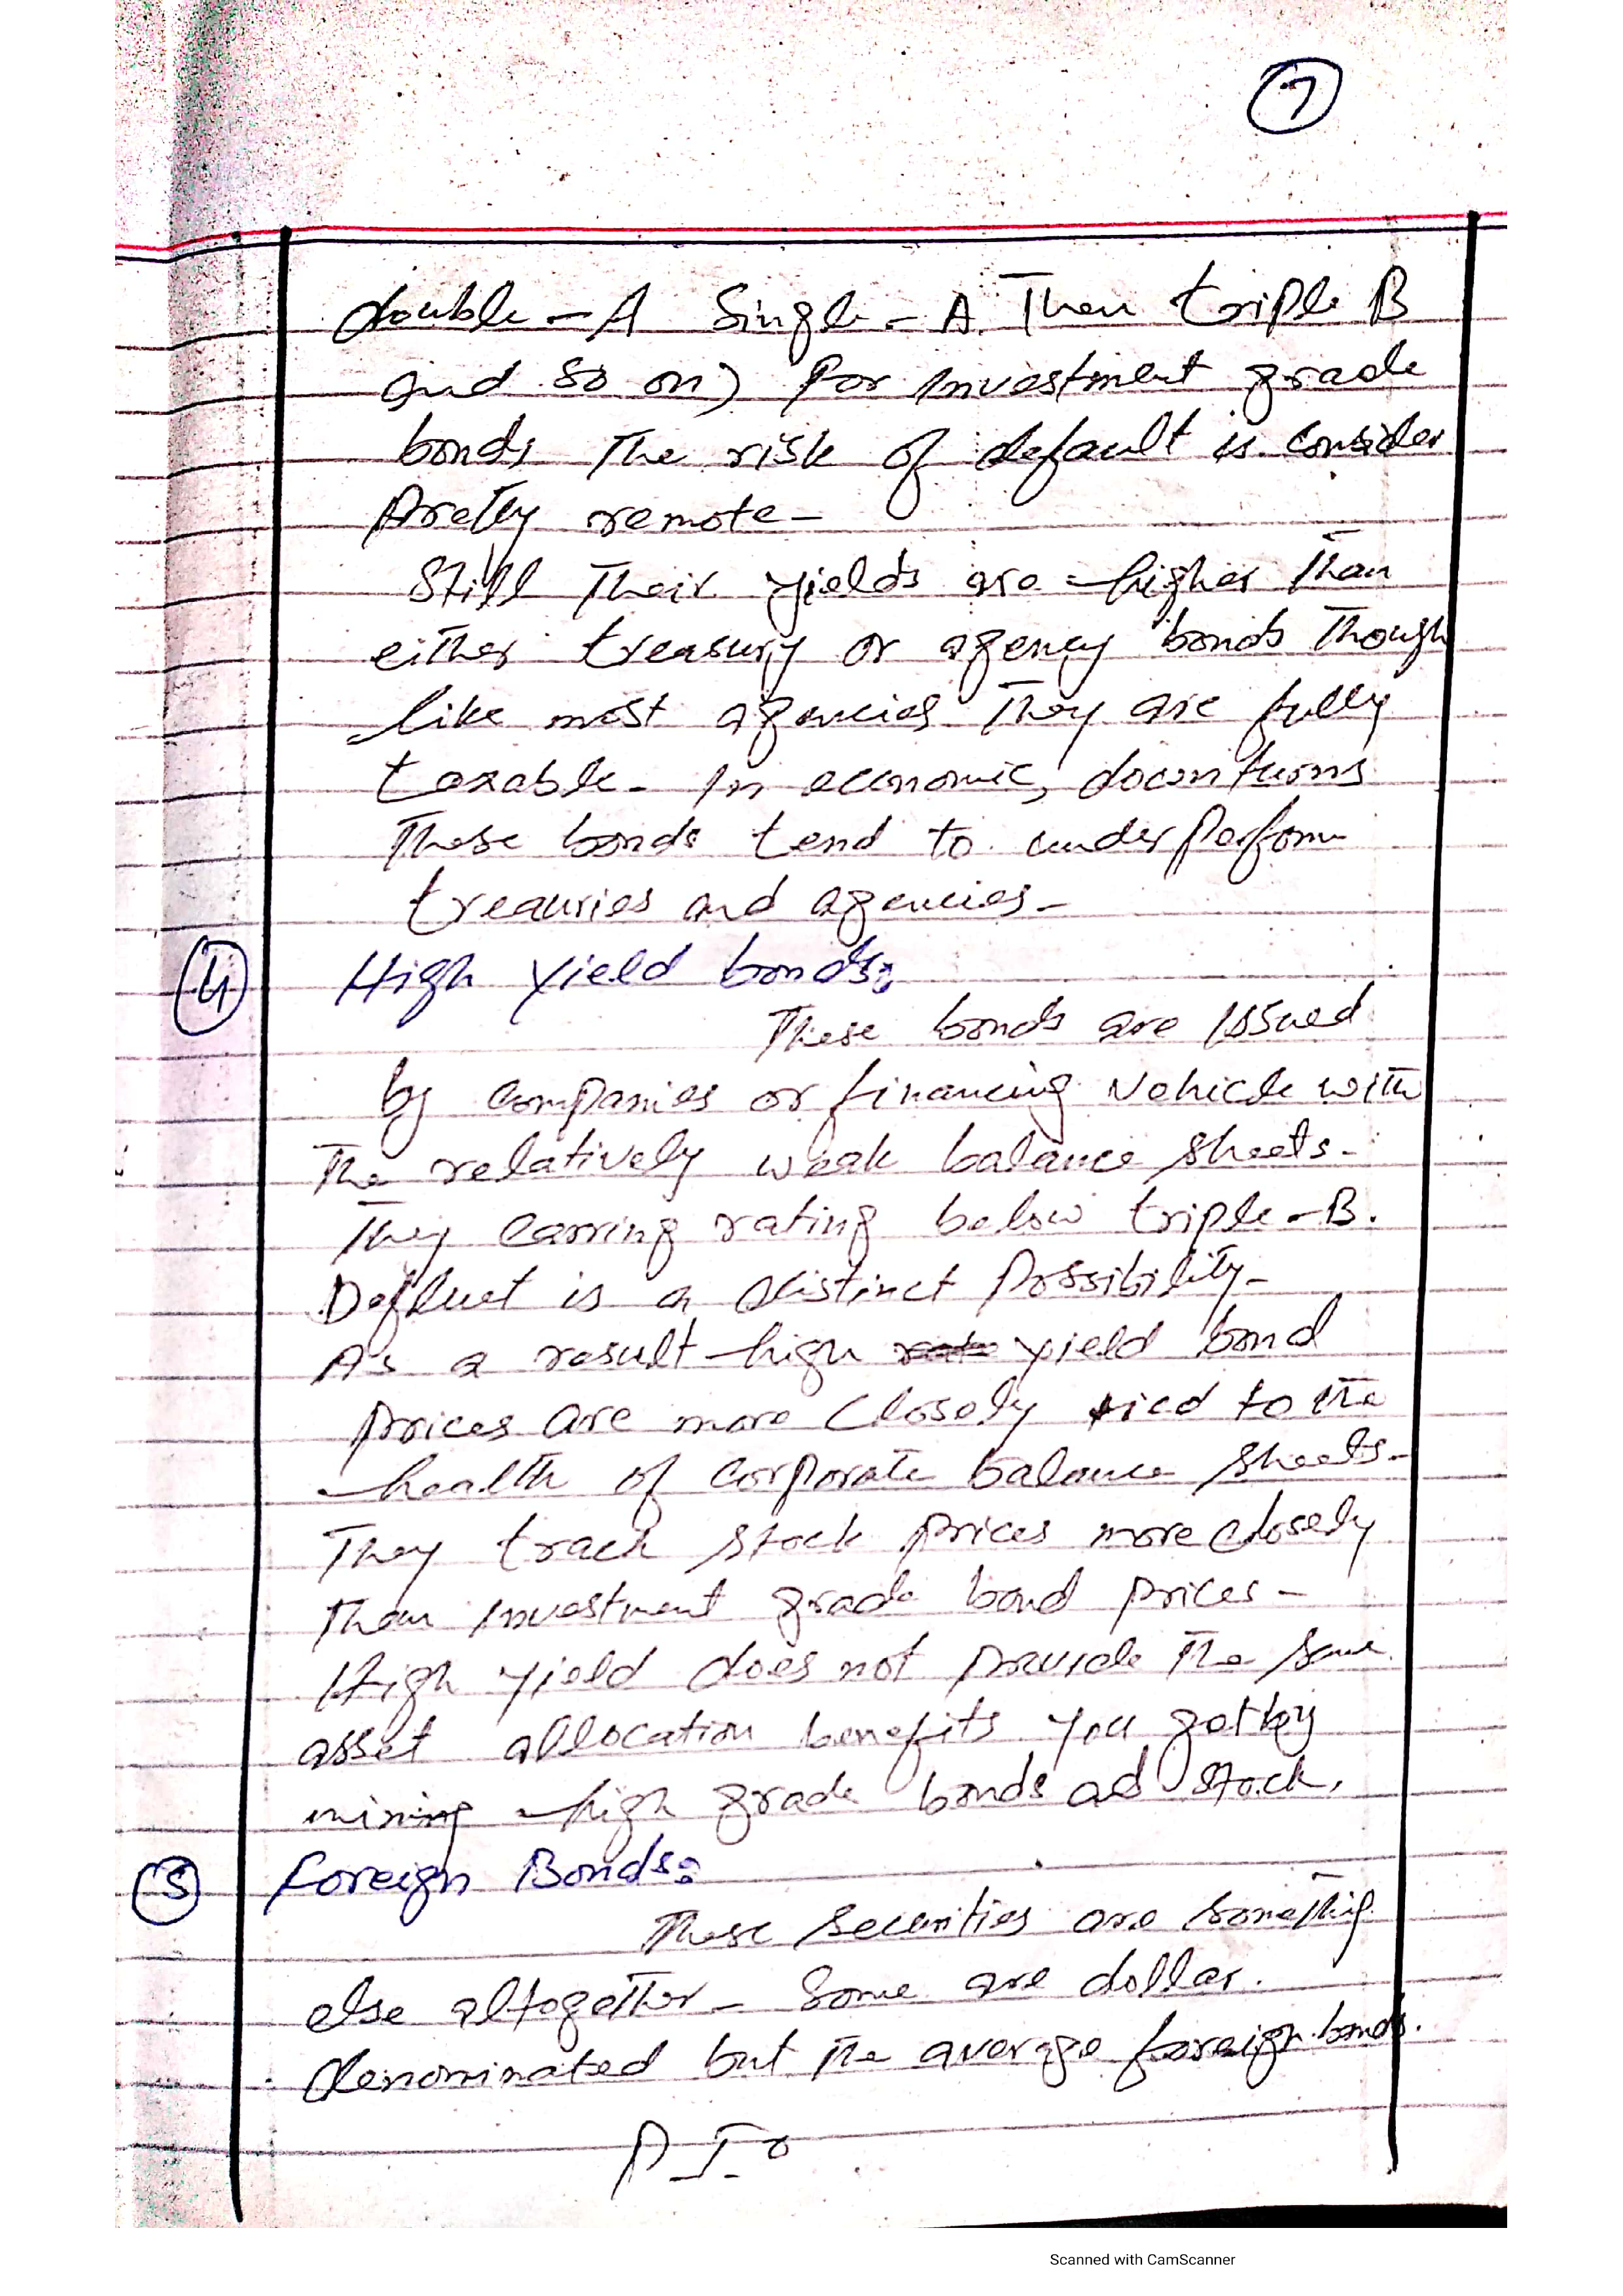 7
double - A Single - A. Then triple B
and so on) for investment grade
bonds The risk of default is consider
pretty remote -
Still Their yields are higher Than
either treasury or agency bonds Though
like most agencies They are fully
taxable - In economic, downturns
These bonds tend to underperform
treauries and agencies -
4 High Yield bonds:
These bonds are issued
by companies or financing vehicle with
The relatively weak balance sheets -
They carring rating below triple - B.
Defluet is a distinct possibility -
As a result high yield bond
prices are more closely tied to the
health of corporate balance sheets -
They track stock prices more closely
Than investment grade bond prices -
High yield does not provide The same
asset allocation benefits you get by
mining high grade bonds ad stock.
5 foreign Bonds:
These securities are somethig
else altogether - Some are dollar.
denominated but The average foreign bonds.
P T o
Scanned with CamScanner